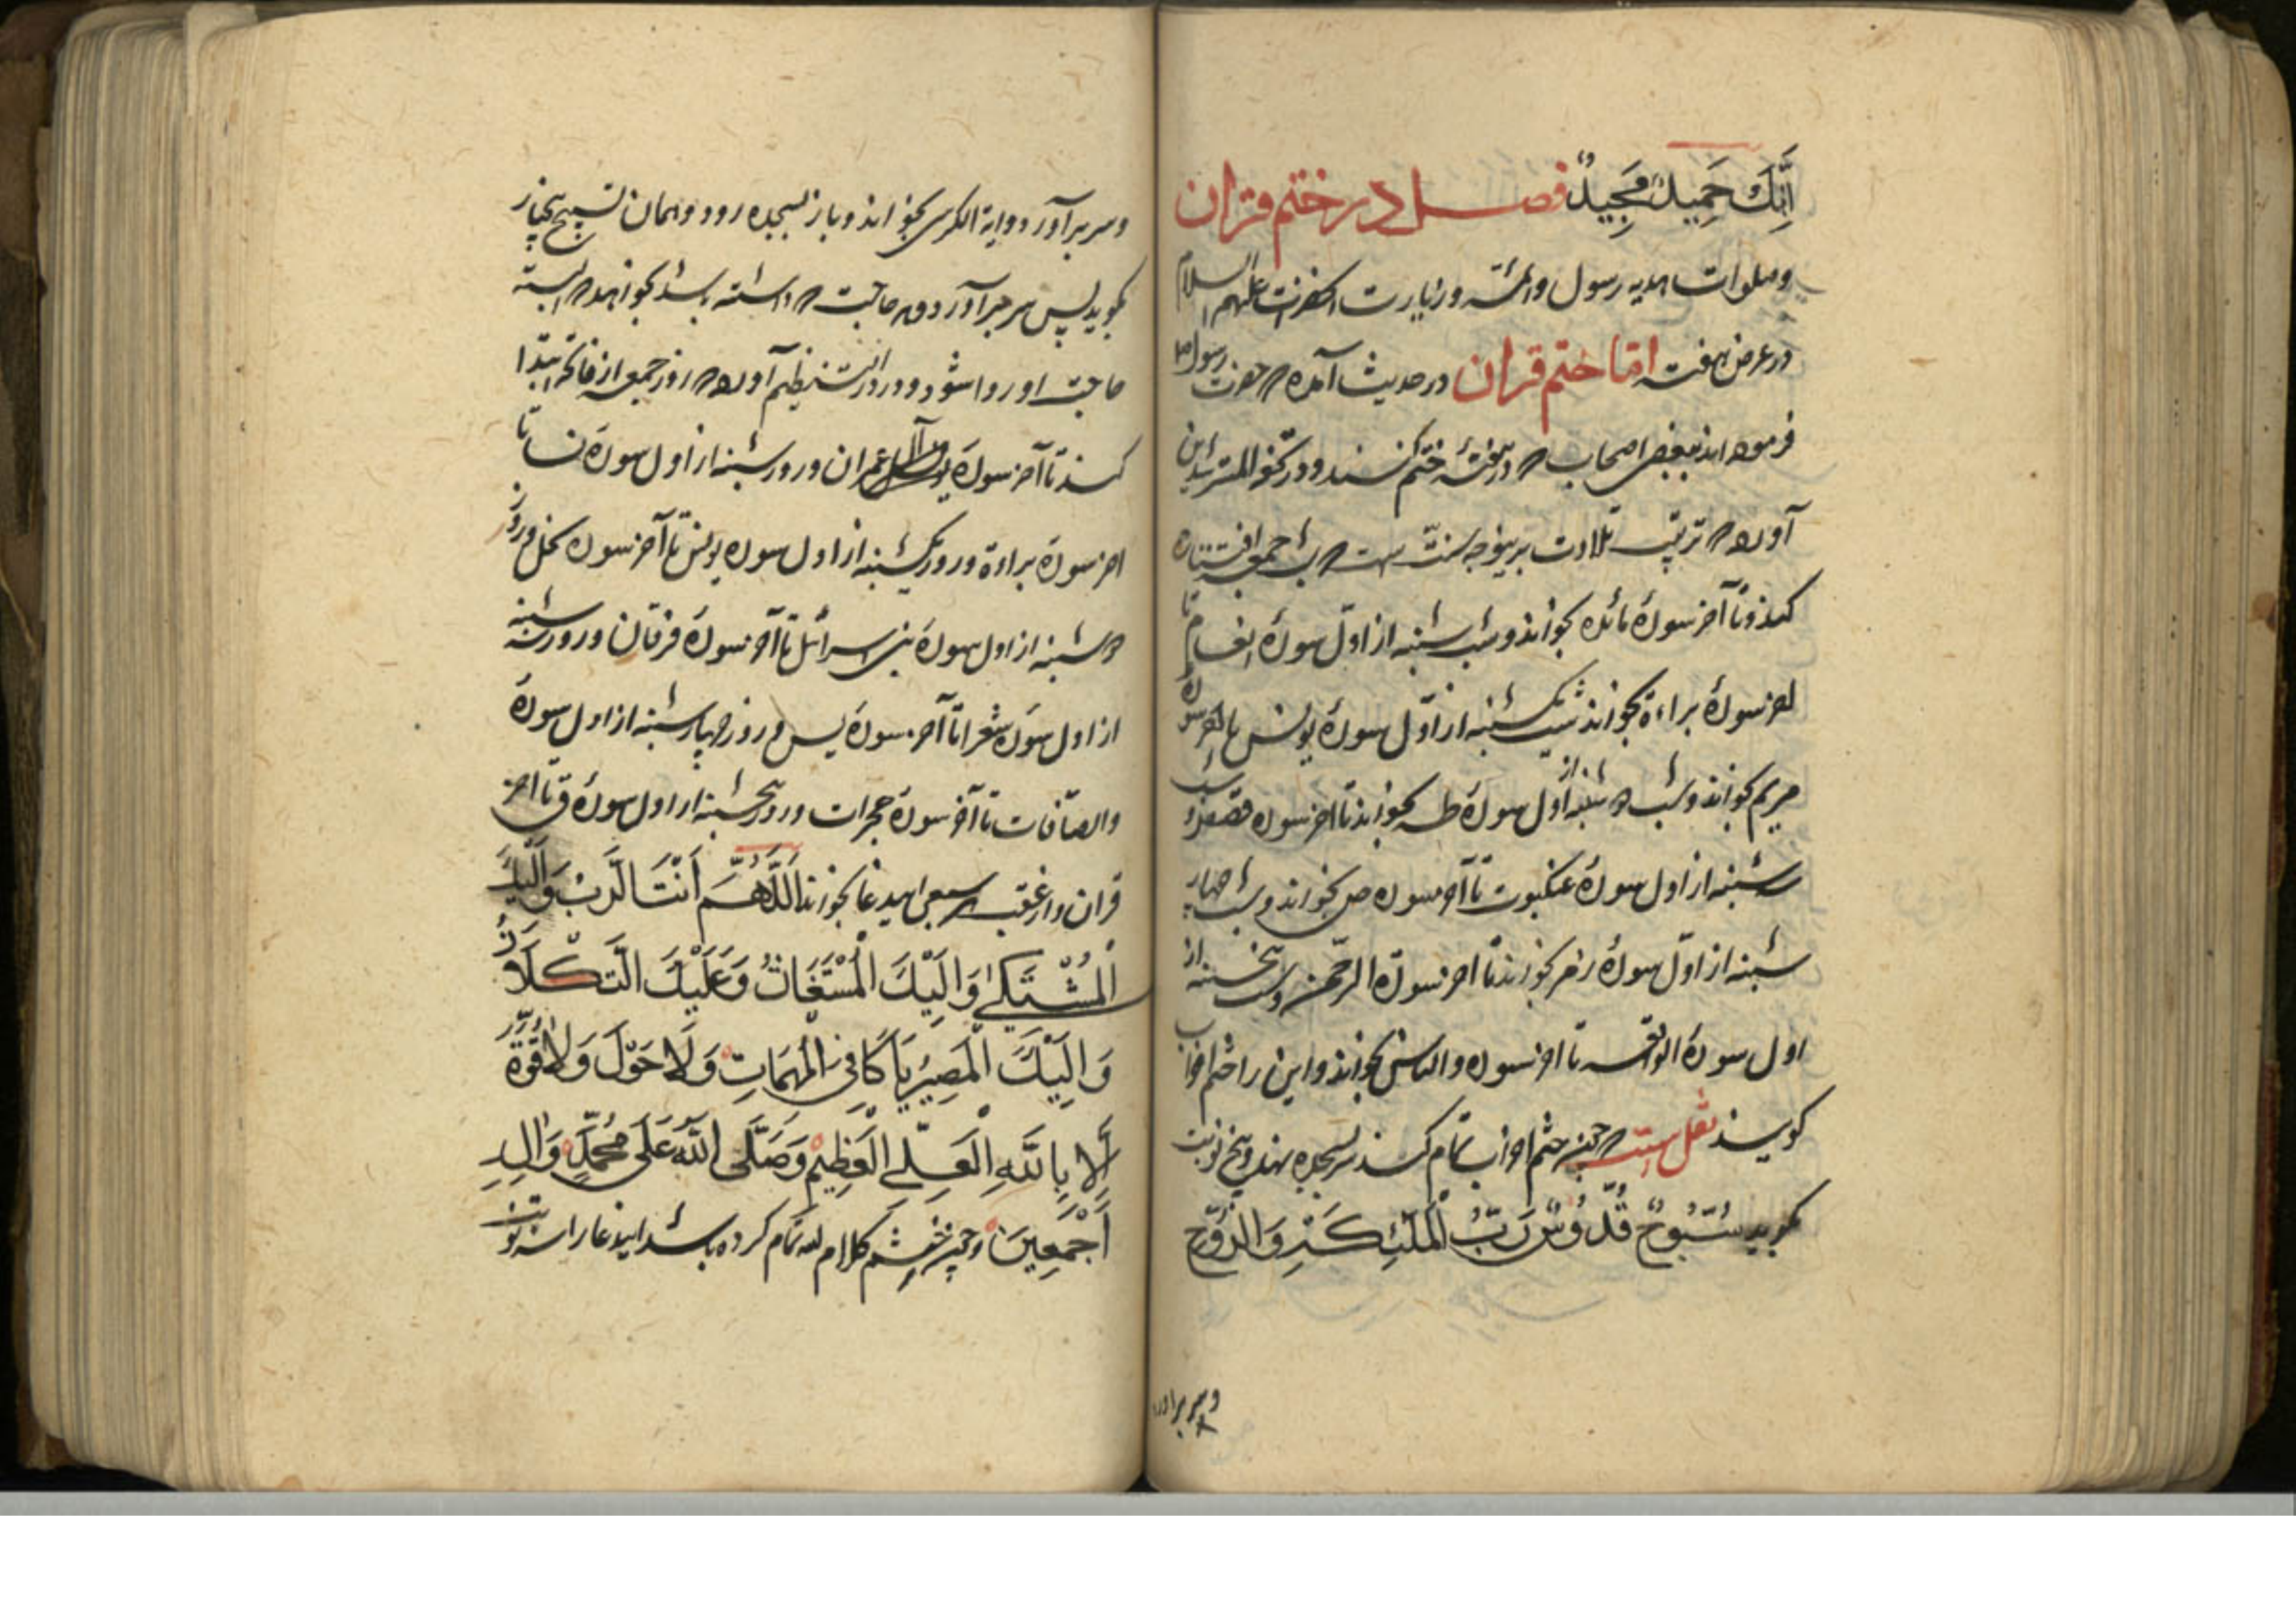 اِنَّكَ حَمِيدٌ مَجِيدٌ فصل در ختم قران
وصلوات هدیه رسول وائمه و زیارت انحضرت علیهم السلام
در عرض هفته اما ختم قران در حدیث آمده که حضرت رسول ص
فرموده اند ببعضی اصحاب که در هفتهٔ ختم کنند و در کنز المسترشدین
آورده که ترتیب تلاوت برینوجه سنت است که شب جمعه افتتاح
کند و تا آخر سورهٔ مائده بخواند و شب شنبه از اوّل سورهٔ انعام تا
اخر سورهٔ براءة بخواند شب یکشنبه از اوّل سورهٔ یونس تا اخر سوره
مریم بخواند و شب دوشنبه از اول سورهٔ طه بخواند تا اخر سوره قصص و
سه شنبه از اول سورهٔ عنکبوت تا آخر سوره ص بخواند و شب چهار
شنبه از اوّل سورهٔ زمر بخواند تا اخر سورة الرّحمن و شب پنجشنبه از
اول سورة الواقعه تا اخر سوره والناس بخواند و این را ختم احزاب
کویند نقل است که چون ختم احزاب تمام کند سر بسجده نهد و پنج نوبت
بکوید سُبُّوحٌ قُدُّوسٌ رَبُّ الْمَلٰئِكَةِ وَالرُّوحِ
و سر براورد
و سر برآورد و وایة الکرسی بخواند و باز بسجده رود و همان تسبیح پنجبار
بکوید پس سر برآورد و هر حاجت که داشته باشد بخواهد که البته
حاجت او روا شود و در درالنظیم آورده که روز جمعه از فاتحه ابتدا
کند تا آخر سورهٔ آل عمران و روز شنبه از اول سورهٔ نسا تا
اخر سورهٔ براءة و روز یکشنبه از اول سوره یونس تا آخر سوره نحل و روز
دوشنبه از اول سورهٔ بنی اسرائل تا آخر سورهٔ فرقان و روز سه شنبه
از اول سورهٔ شعرا تا آخر سورهٔ یس و روز چهارشنبه از اول سورهٔ
والصّافات تا آخر سورهٔ حجرات و روز پنجشنبه از اول سورهٔ ق تا اخر
قران و از عقب هر سبعی اید عا بخواند اَللّٰهُمَّ اَنْتَ الرَّبُّ وَاِلَيْكَ
الْمُشْتَكٰى وَاِلَيْكَ الْمُسْتَغَاثُ وَعَلَيْكَ التُّكْلَانُ
وَاِلَيْكَ الْمَصِيرُ يَا كَافِىَ الْمُهِمَّاتِ وَلَا حَوْلَ وَلَا قُوَّةَ
اِلَّا بِاللّٰهِ الْعَلِىِّ الْعَظِيمِ وَصَلَّى اللّٰهُ عَلٰى مُحَمَّدٍ وَاٰلِهِ
اَجْمَعِينَ و چون ختم کلام الله تمام کرده باشد ایندعا را سه نوبت